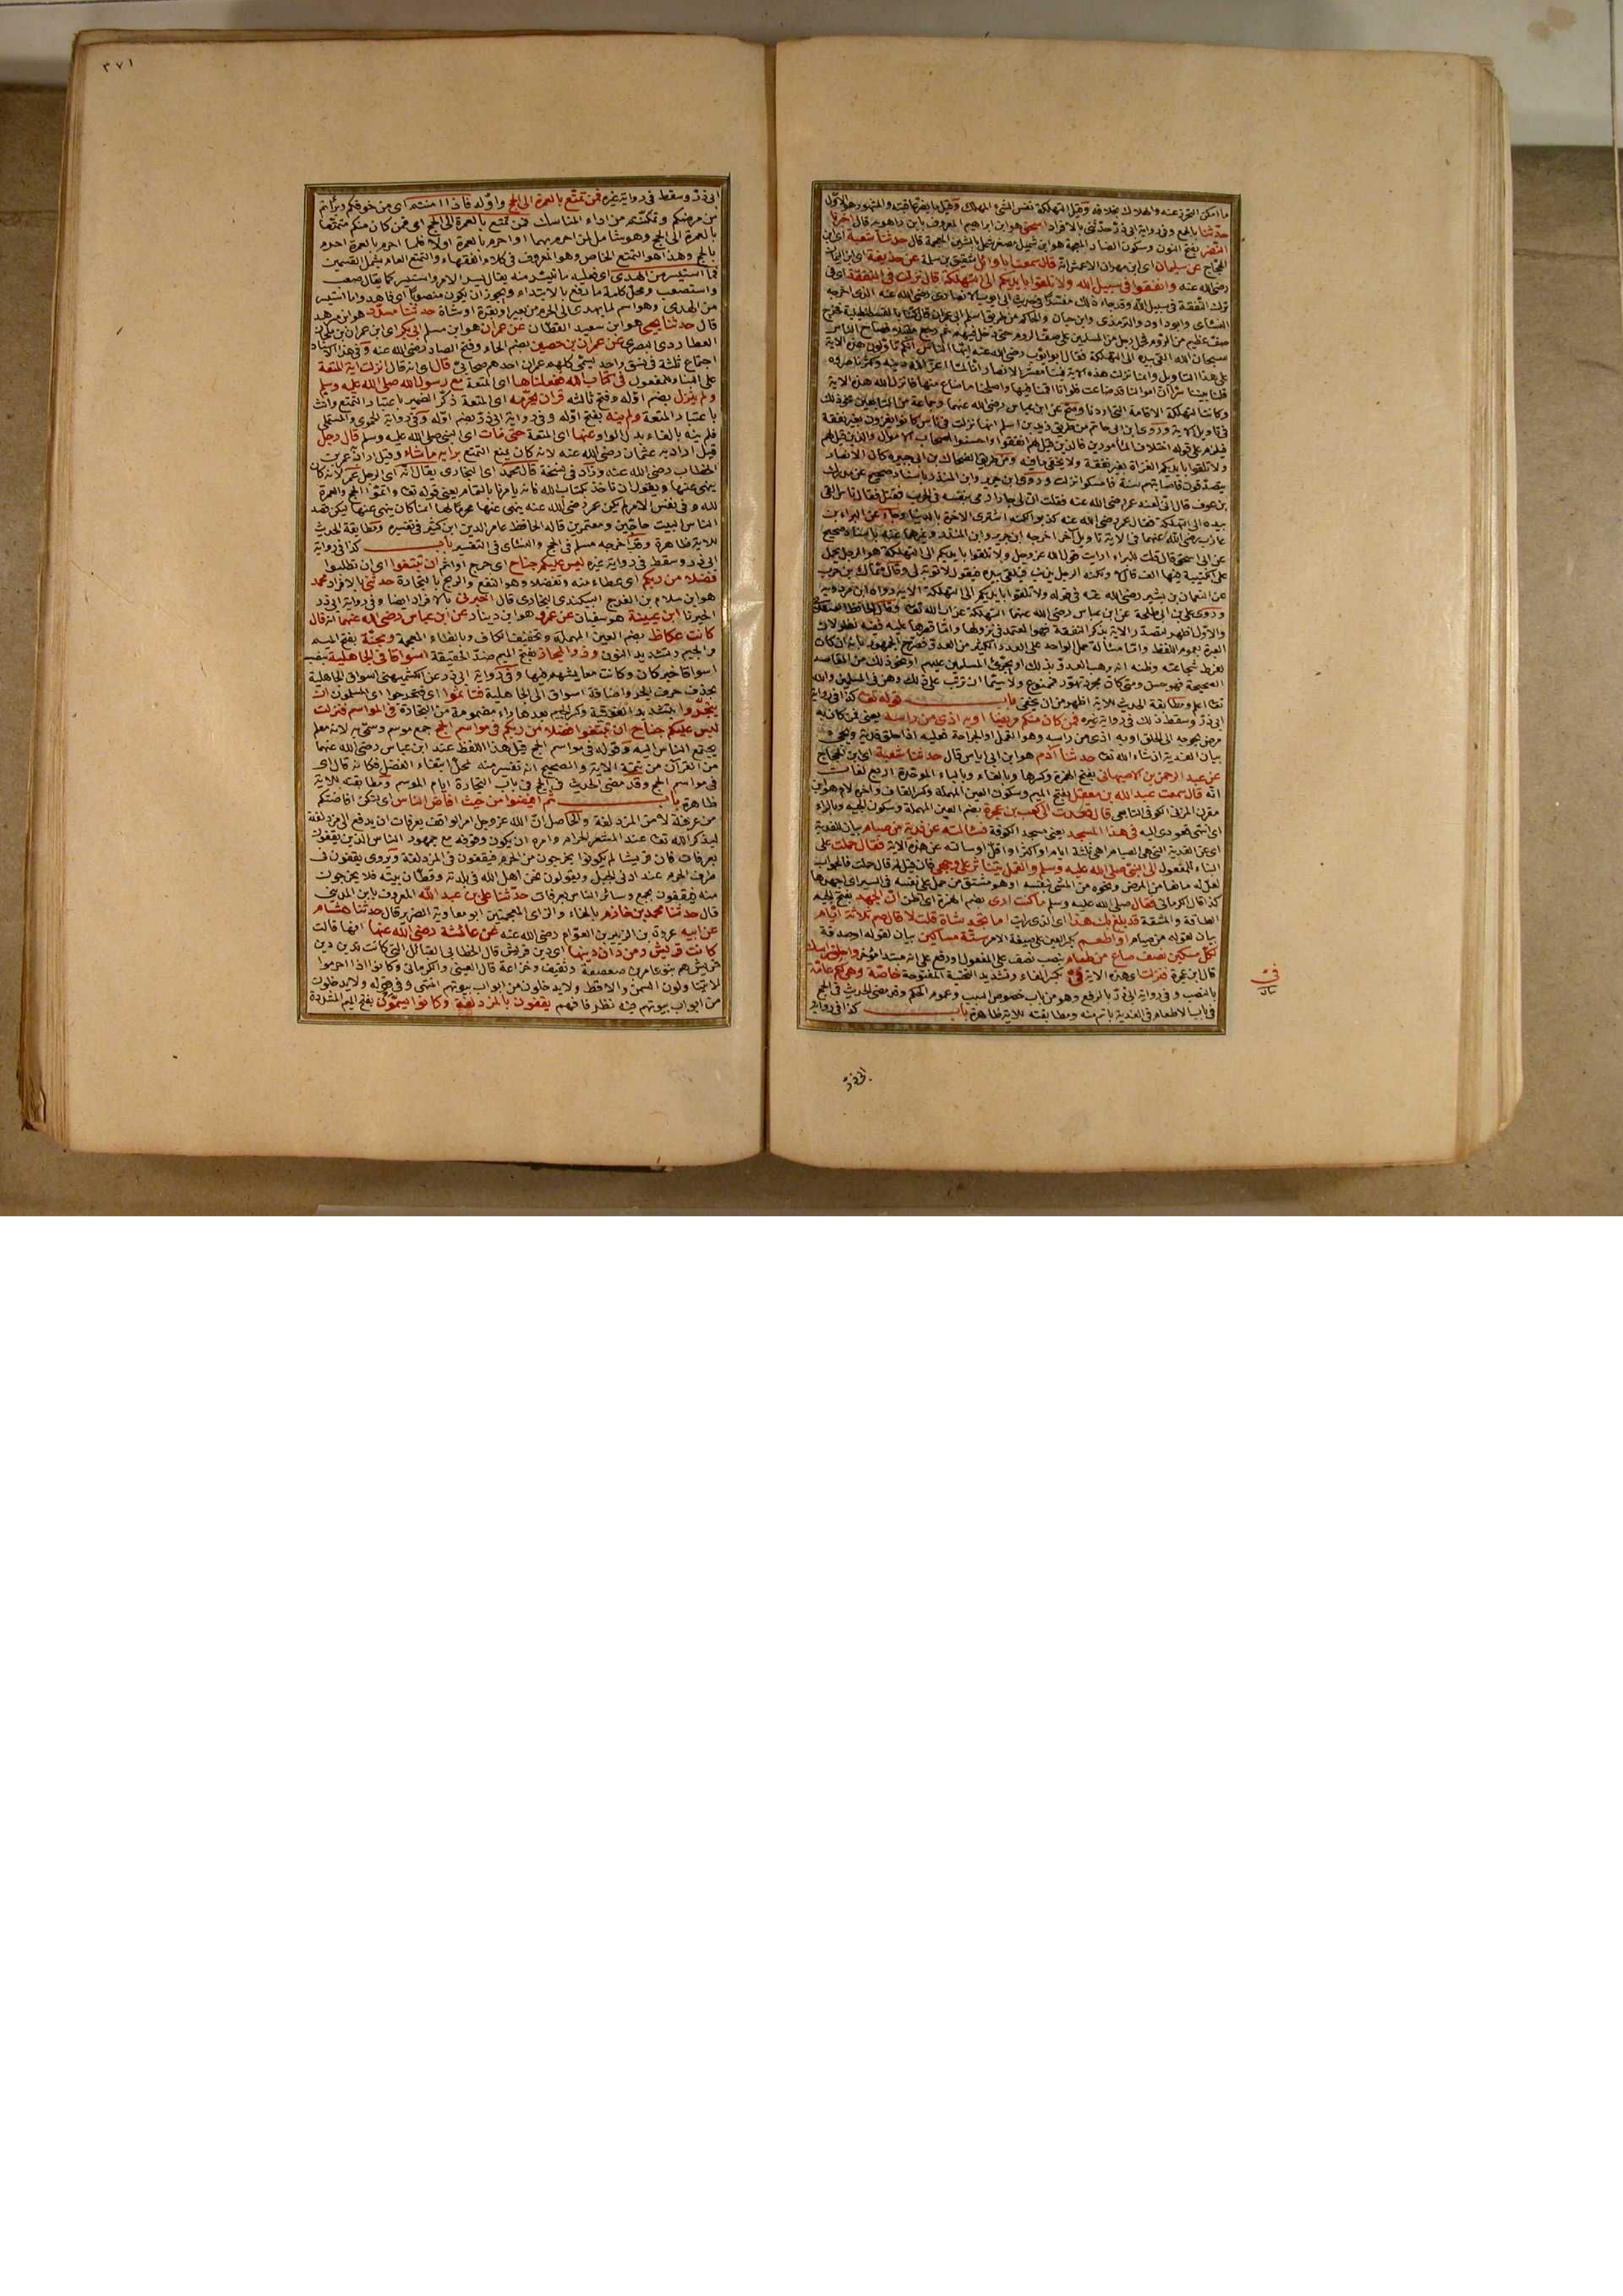 ما امكن التحرز عنه والهلاك بخلافه وقيل التهلكة نفس الشئ المهلك وقيل ما يضر عاقبته والمشهور هو الاول
حدثنا بالجمع وفي رواية ابي ذر حدثني بالافراد اسحق هو ابن ابراهيم المعروف بابن راهويه قال اخبرنا
النضر بفتح النون وسكون الضاد المعجمة هو ابن شميل مصغر شمل بالشين المعجمة قال حدثنا شعبة اي ابن
الحجاج عن سليمان اي ابن مهران الاعمش انه قال سمعت ابا وائل شقيق بن سلمة عن حذيفة اي ابن اليمان
رضي الله عنه وانفقوا في سبيل الله ولا تلقوا بايديكم الى التهلكة قال نزلت في النفقة اي في
ترك النفقة في سبيل الله وقد جاء ذلك مفسرا في حديث ابي ايوب الانصاري رضي الله عنه الذي اخرجه
النسائي وابو داود والترمذي وابن حبان والحاكم من طريق اسلم ابي عمران قال كنا بالقسطنطينية فخرج
صف عظيم من الروم فحمل رجل من المسلمين على صف الروم حتى دخل فيهم ثم رجع مقبلا فصاح الناس
سبحان الله القى بيده الى التهلكة فقال ابو ايوب رضي الله عنه ايها الناس انكم تاولون هذه الاية
على هذا التاويل وانما نزلت هذه الاية فينا معشر الانصار انا لما اعز الله دينه وكثر ناصروه
قلنا بيننا سرا ان اموالنا قد ضاعت فلو انا اقمنا فيها واصلحنا ما ضاع منها فانزل الله هذه الاية
وكانت التهلكة الاقامة التي اردنا وصح عن ابن عباس رضي الله عنهما وجماعة من التابعين نحو ذلك
في تاويل الاية وروى ابن ابي حاتم من طريق زيد بن اسلم انها نزلت في ناس كانوا يغزون بغير نفقة
فيلزم على قوله اختلاف المأمورين فالذين قيل لهم انفقوا واحسنوا اصحاب الاموال والذين قيل لهم
ولا تلقوا بايديكم الغزاة بغير نفقة ولا يخفى ما فيه ومن طريق الضحاك بن ابي جبيرة كان الانصار
يتصدقون فاصابتهم سنة فامسكوا فنزلت وروى ابن جرير وابن المنذر باسناد صحيح عن مدرك
بن عوف قال اني لعند عمر رضي الله عنه فقلت ان لي جارا رمى بنفسه في الحرب فقتل فقال ناس القى
بيده الى التهلكة فقال عمر رضي الله عنه كذبوا لكنه اشترى الاخرة بالدنيا وجاء عن البراء بن
عازب رضي الله عنهما في الاية تاويل آخر اخرجه ابن جرير وابن المنذر وغيرهما عنه باسناد صحيح
عن ابي اسحق قال قلت للبراء ارايت قول الله عز وجل ولا تلقوا بايديكم الى التهلكة هو الرجل يحمل
على الكتيبة فيها الف قال لا ولكنه الرجل يذنب فيلقي بيده فيقول لا توبة لي وقال سماك بن حرب
عن النعمان بن بشير رضي الله عنه في قوله ولا تلقوا بايديكم الى التهلكة الاية رواه ابن مردويه
وروى علي بن ابي طلحة عن ابن عباس رضي الله عنهما التهلكة عذاب الله تعا وقال الحافظ العسقلاني
والاول اظهر لتصدر الاية بذكر النفقة فهو المعتمد في نزولها واما قصرها عليه ففيه نظر لان
العبرة بعموم اللفظ واما مسألة حمل الواحد على العدد الكثير من العدو فصرح الجمهور بانه ان كان
لفرط شجاعته وظنه انه يرهب العدو بذلك او يجرئ المسلمين عليهم او نحو ذلك من المقاصد
الصحيحة فهو حسن ومتى كان مجرد تهور فممنوع ولا سيما ان ترتب على ذلك وهن في المسلمين والله
تعا اعلم ومطابقة الحديث للاية اظهر من ان يخفى باب قوله تعا كذا في رواية
ابي ذر وسقط ذلك في رواية غيره فمن كان منكم مريضا او به اذى من راسه يعني فمن كان به
مرض يحوجه الى الحلق او به اذى من راسه وهو القمل او الجراحة فعليه اذا حلق فدية ويجئ
بيان الفدية ان شاء الله تعا حدثنا آدم هو ابن ابي اياس قال حدثنا شعبة اي ابن الحجاج
عن عبد الرحمن بن الاصبهاني بفتح الهمزة وكسرها وبالفاء وبالباء الموحدة اربع لغات
انه قال سمعت عبد الله بن معقل بفتح الميم وسكون العين المهملة وكسر القاف وآخره لام هو ابن
مقرن المزني الكوفي التابعي قال قعدت الى كعب بن عجرة بضم العين المهملة وسكون الجيم وبالراء
اي انتهى قعودي اليه في هذا المسجد يعني مسجد الكوفة فسألته عن فدية من صيام بيان للفدية
اي عن الفدية التي هي الصيام اهي ثلثة ايام او اكثر او اقل او سالته عن هذه الاية فقال حملت على
البناء للمفعول الى النبي صلى الله عليه وسلم والقمل يتناثر على وجهي فان قيل لم قال حملت فالجواب
لعل له مانعا من المرض ونحوه من المشي بنفسه او هو مشتق من حمل على نفسه في السير اي اجهدها
كذا قال الكرماني فقال صلى الله عليه وسلم ما كنت ارى بضم الهمزة اي اظن ان الجهد بفتح الجيم
الطاقة والمشقة قد بلغ بك هذا اي الذي رايت اما تجد شاة قلت لا قال صم ثلاثة ايام
بيان لقوله من صيام او اطعم بكسر العين على صيغة الامر ستة مساكين بيان لقوله او صدقة
لكل مسكين نصف صاع من طعام بنصب نصف على المفعول ورفع على انه مبتدا مؤخر واحلق راسك
قال ابن عجرة فنزلت اي هذه الاية في بكسر الفاء وتشديد التحتية المفتوحة خاصة وهي لكم عامة
بالنصب وفي رواية ابي ذر بالرفع وهو من باب خصوص السبب وعموم الحكم وقد مضى الحديث في الحج
في باب الاطعام في الفدية باتم منه ومطابقته للاية ظاهرة باب كذا في رواية
ابي ذر
٣٧١
ابي ذر وسقط في رواية غيره فمن تمتع بالعمرة الى الحج واوله فاذا امنتم اي من خوفكم وبرأتم
من مرضكم وتمكنتم من اداء المناسك فمن تمتع بالعمرة الى الحج اي فمن كان منكم متمتعا
بالعمرة الى الحج وهو شامل لمن احرم بهما او احرم بالعمرة اولا فلما احرم بالعمرة احرم
بالحج وهذا هو التمتع الخاص وهو المعروف في كلام الفقهاء والتمتع العام يشمل القسمين
فما استيسر من الهدى اي فعليه ما تيسر منه يقال يسر الامر واستيسر كما يقال صعب
واستصعب ومحل كلمة ما رفع بالابتداء ويجوز ان يكون منصوبا اي فاهدوا ما استيسر
من الهدي وهو اسم لما يهدى الى الحرم من بعير او بقرة او شاة حدثنا مسدد هو ابن مرهد
قال حدثنا يحيى هو ابن سعيد القطان عن عمران هو ابن مسلم ابي بكر اي ابن عمران بن ملحان
العطاردي البصري عن عمران بن حصين بضم الحاء وفتح الصاد رضي الله عنه وفي هذا الاسناد
اجتماع ثلثة في نسق واحد يسمى كلهم عمران احدهم صحابي قال اي انه قال انزلت اية المتعة
على البناء للمفعول في كتاب الله ففعلناها اي المتعة مع رسول الله صلى الله عليه وسلم
ولم ينزل بضم اوله وفتح ثالثه قران يحرمه اي المتعة ذكر الضمير باعتبار التمتع وانث
باعتبار المتعة ولم ينه بفتح اوله وفي رواية ابي ذر بضم اوله وفي رواية الحموي والمستملي
فلم ينه بالفاء بدل الواو عنها اي المتعة حتى مات اي النبي صلى الله عليه وسلم قال رجل
قيل اراد به عثمان رضي الله عنه لانه كان يمنع التمتع برايه ما شاء وقيل اراد به عمر بن
الخطاب رضي الله عنه وزاد في نسخة قال محمد اي البخاري يقال انه اي الرجل عمر لانه كان
ينهى عنها ويقول ان ناخذ بكتاب الله فانه يامرنا بالتمام يعني قوله تعا واتموا الحج والعمرة
لله وفي نفس الامر لم يكن عمر رضي الله عنه ينهى عنها محرما لها انما كان ينهى عنها ليكثر قصد
الناس البيت حاجين ومعتمرين قاله الحافظ عماد الدين ابن كثير في تفسيره ومطابقة الحديث
للاية ظاهرة وقد اخرجه مسلم في الحج والنسائي في التفسير باب كذا في رواية
ابي ذر وسقط في رواية غيره ليس عليكم جناح اي حرج او اثم ان تبتغوا اي ان تطلبوا
فضلا من ربكم اي عطاء منه وتفضلا وهو النفع والربح بالتجارة حدثني بالافراد محمد
هو ابن سلام بن الفرج البيكندي البخاري قال اخبرني بالافراد ايضا وفي رواية ابي ذر
اخبرنا ابن عيينة هو سفيان عن عمرو هو ابن دينار عن ابن عباس رضي الله عنهما انه قال
كانت عكاظ بضم العين المهملة وتخفيف الكاف وبالظاء المعجمة ومجنة بفتح الميم
والجيم وتشديد النون وذو المجاز بفتح الميم ضد الحقيقة اسواقا في الجاهلية بنصب
اسواقا خبر كان وكانت معايشهم فيها وفي رواية ابي ذر عن الكشميهني اسواق الجاهلية
بحذف حرف الجر واضافة اسواق الى الجاهلية فتاثموا اي فتحرجوا اي المسلمون ان
يتجروا بتشديد الفوقية وكسر الجيم بعدها راء مضمومة من التجارة في المواسم فنزلت
ليس عليكم جناح ان تبتغوا فضلا من ربكم في مواسم الحج جمع موسم وسمي به لانه معلم
يجتمع الناس اليه وقوله في مواسم الحج قيل هذا اللفظ عند ابن عباس رضي الله عنهما
من القرآن من تتمة الاية والصحيح انه تفسير منه لمحل ابتغاء الفضل فكانه قال اي
في مواسم الحج وقد مضى الحديث في الحج في باب التجارة ايام الموسم ومطابقته للاية
ظاهرة باب ثم افيضوا من حيث افاض الناس اي لتكن افاضتكم
من عرفة لا من المزدلفة والحاصل ان الله عز وجل امر الواقف بعرفات ان يدفع الى المزدلفة
ليذكر الله تعا عند المشعر الحرام وامره ان يكون وقوفه مع جمهور الناس الذين يقفون
بعرفات فان قريشا لم يكونوا يخرجون من الحرم فيقفون في المزدلفة ويروى يقفون في
طرف الحرم عند ادنى الجبل ويقولون نحن اهل الله في بلدته وقطان بيته فلا يخرجون
منه فيقفون بجمع وسائر الناس بعرفات حدثنا علي بن عبد الله المعروف بابن المديني
قال حدثنا محمد بن خازم بالخاء والزاي المعجمتين ابو معاوية الضرير قال حدثنا هشام
عن ابيه عروة بن الزبير بن العوام رضي الله عنه عن عائشة رضي الله عنها انها قالت
كانت قريش ومن دان دينها اي دين قريش قال الخطابي القبائل التي كانت تدين دين
قريش هم بنو عامر بن صعصعة وثقيف وخزاعة قال العيني والكرماني وكانوا اذا احرموا
لا يتناولون السمن والاقط ولا يدخلون من ابواب بيوتهم انتهى وفي قوله ولا يدخلون
من ابواب بيوتهم فيه نظر فانهم يقفون بالمزدلفة وكانوا يسمون بفتح الميم المشددة